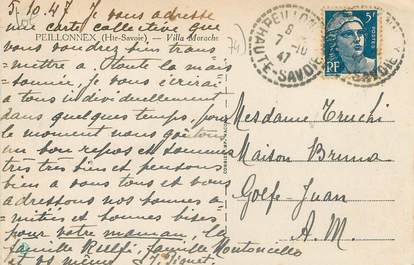 5.10.47 Je vous adresse
une carte collective que
PEILLONNEX (Hte-Savoie) — Villa
vous voudrez bien trans
mettre à toute la mai-
sonnée, je vous écrirai
à tous individuellement
dans quelques temps, pour
le moment nous goûtons
un bon repos et sommes
très très bien et pensons
bien à vous tous et vous
adressons nos bonnes a-
mitiés et bonnes bises
pour votre maman, la
famille famille
et vous même
PEILLONNEX
HAUTE-SAVOIE
7-10
47
5F
POSTES
RF
Mesdames Truchi
Maison Bruna
Golfe-Juan
A.M.